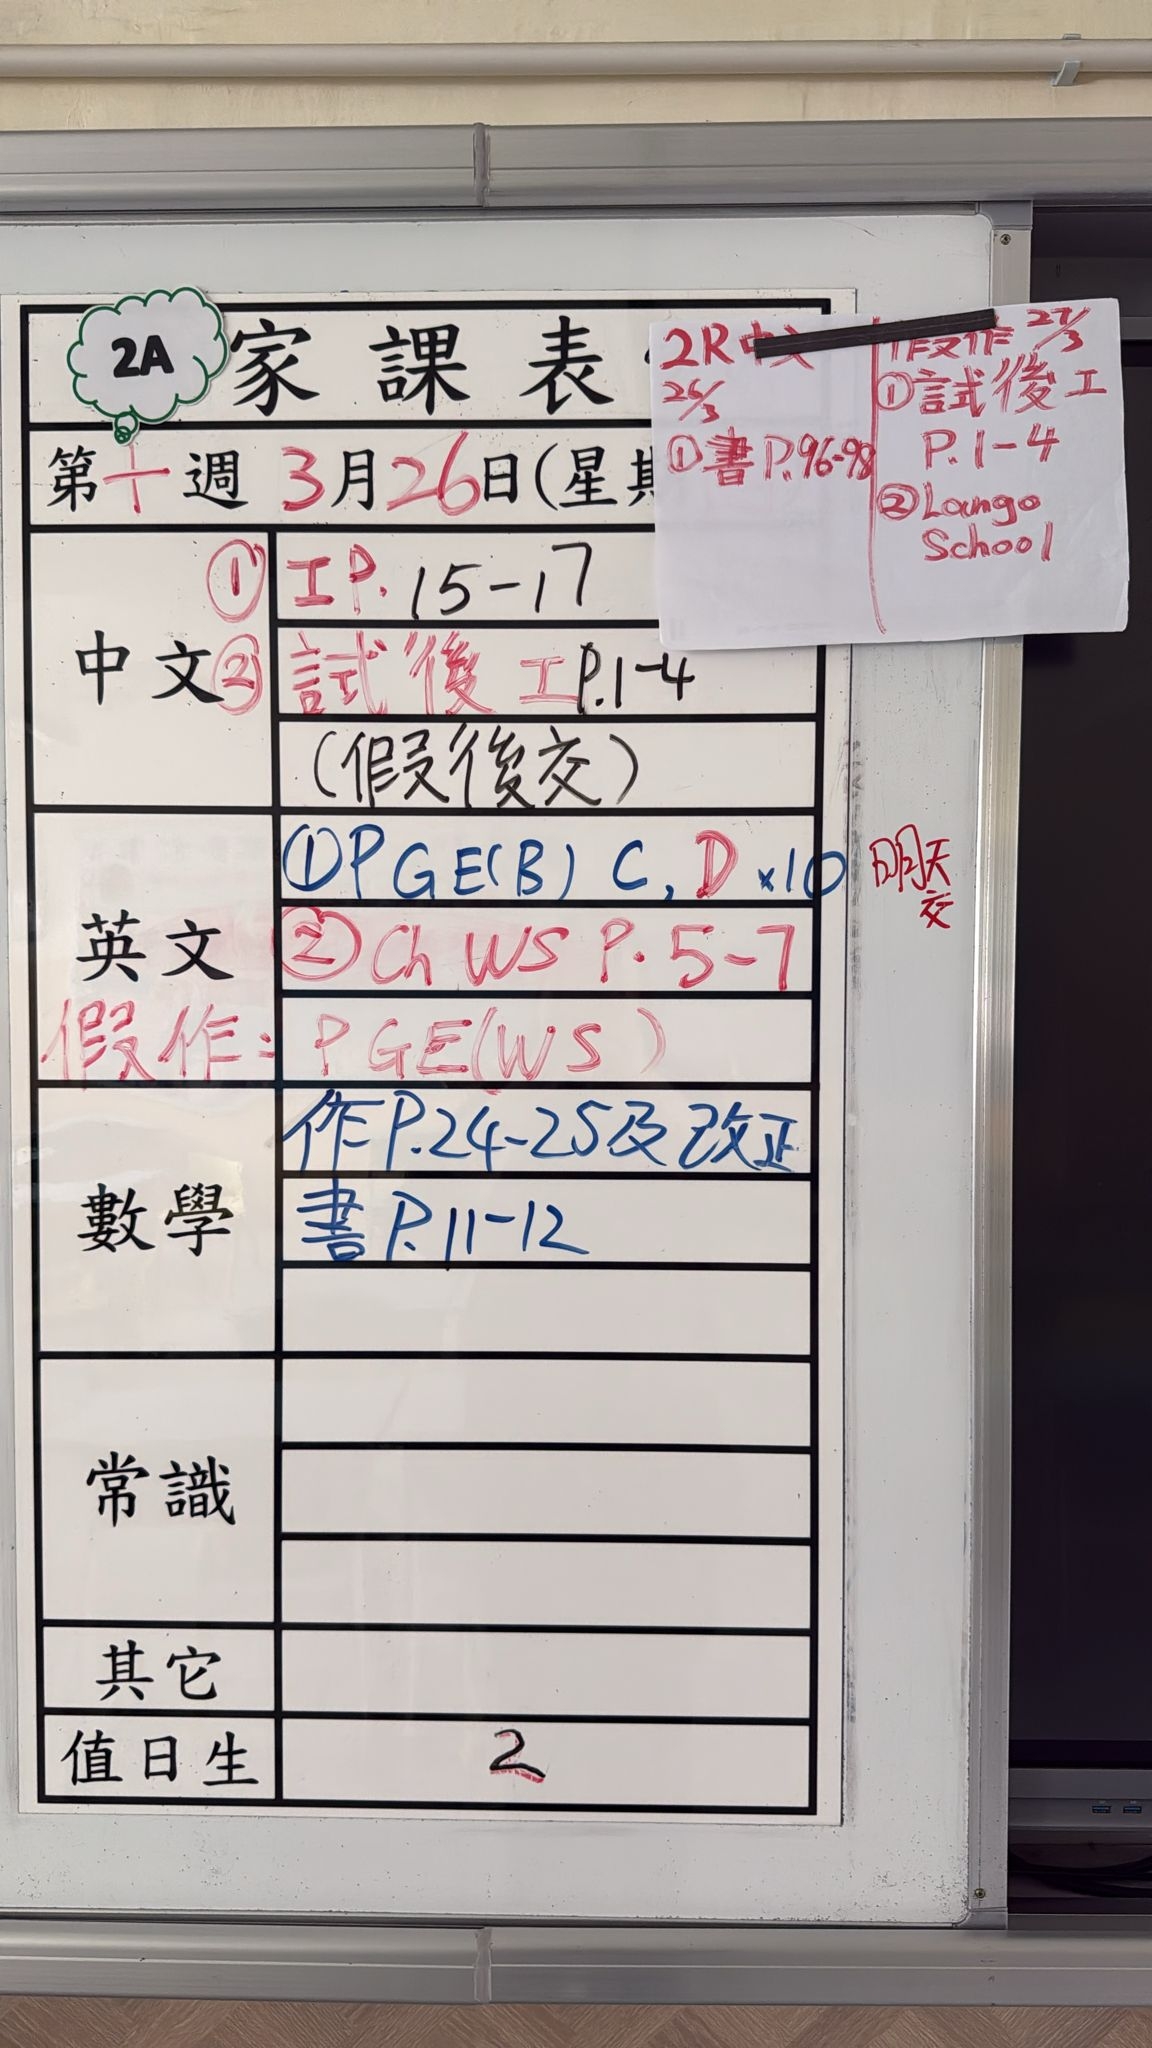 2A
家課表
第十週 3月26日(星期
中文
① 工P. 15-17
② 試後工P.1-4
(假後交)
英文
①PGE(B) C, D ×10
明天
交
② Ch WS P. 5-7
假作: PGE(WS)
數學
作P.24-25及改正
書P.11-12
常識
其它
值日生
2
2R中文
26/3
①書P.96-98
假作 27/3
①試後工
P.1-4
②Lango
School